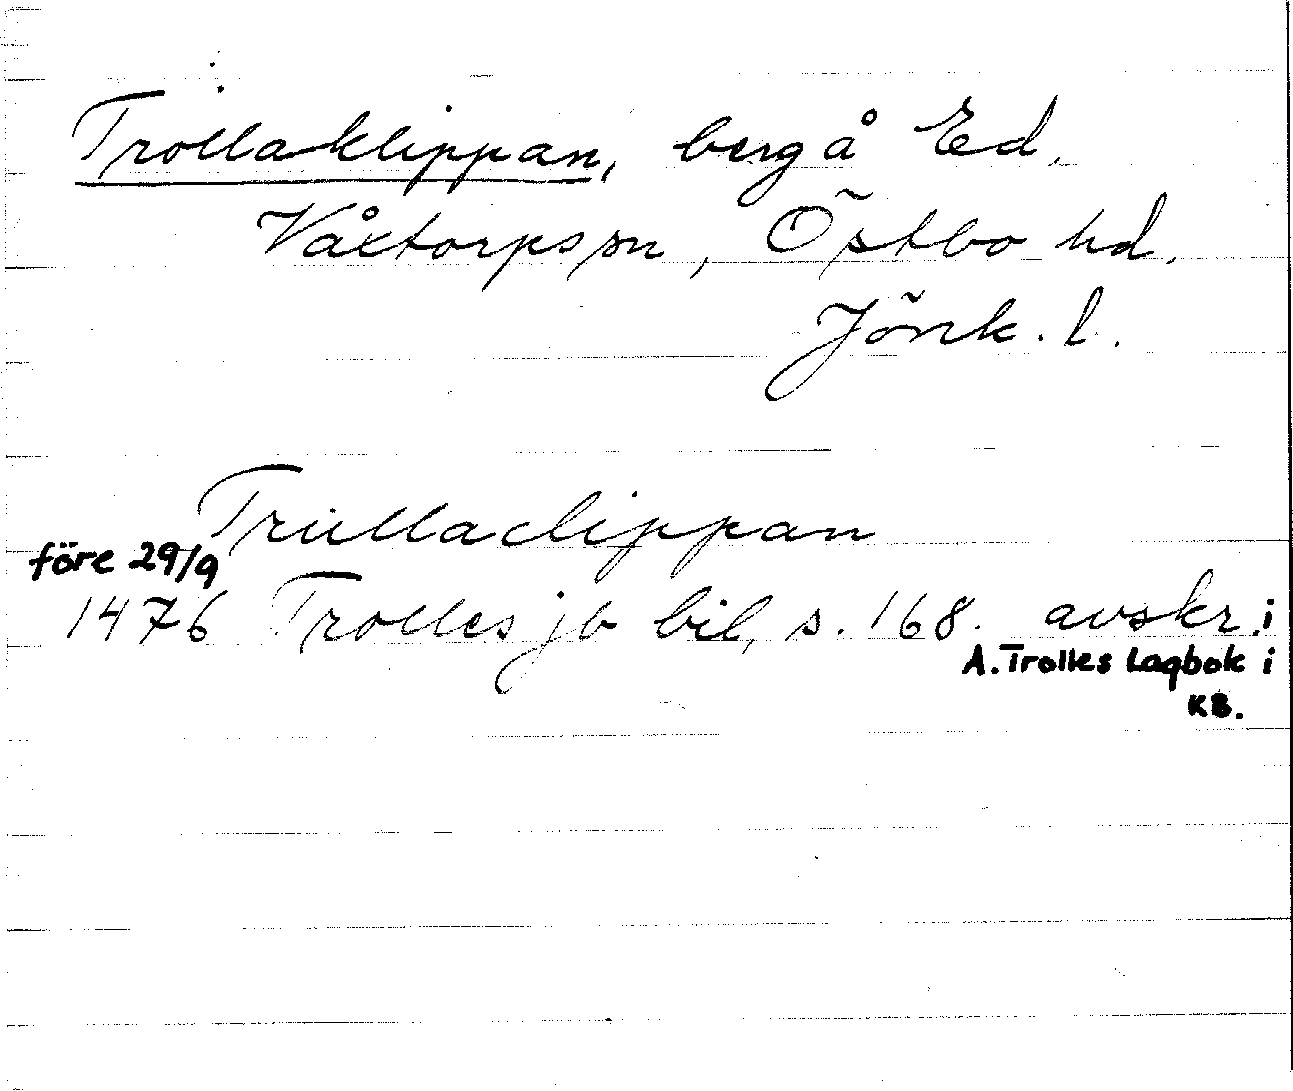 Trollaklippan, berg å Ed,
Våxtorps sn, Östbo hd,
Jönk. l.
Trullaclippan
före 29/9
1476 Trolles jb bil, s. 168. avskr. i
A. Trolles Lagbok i
KB.